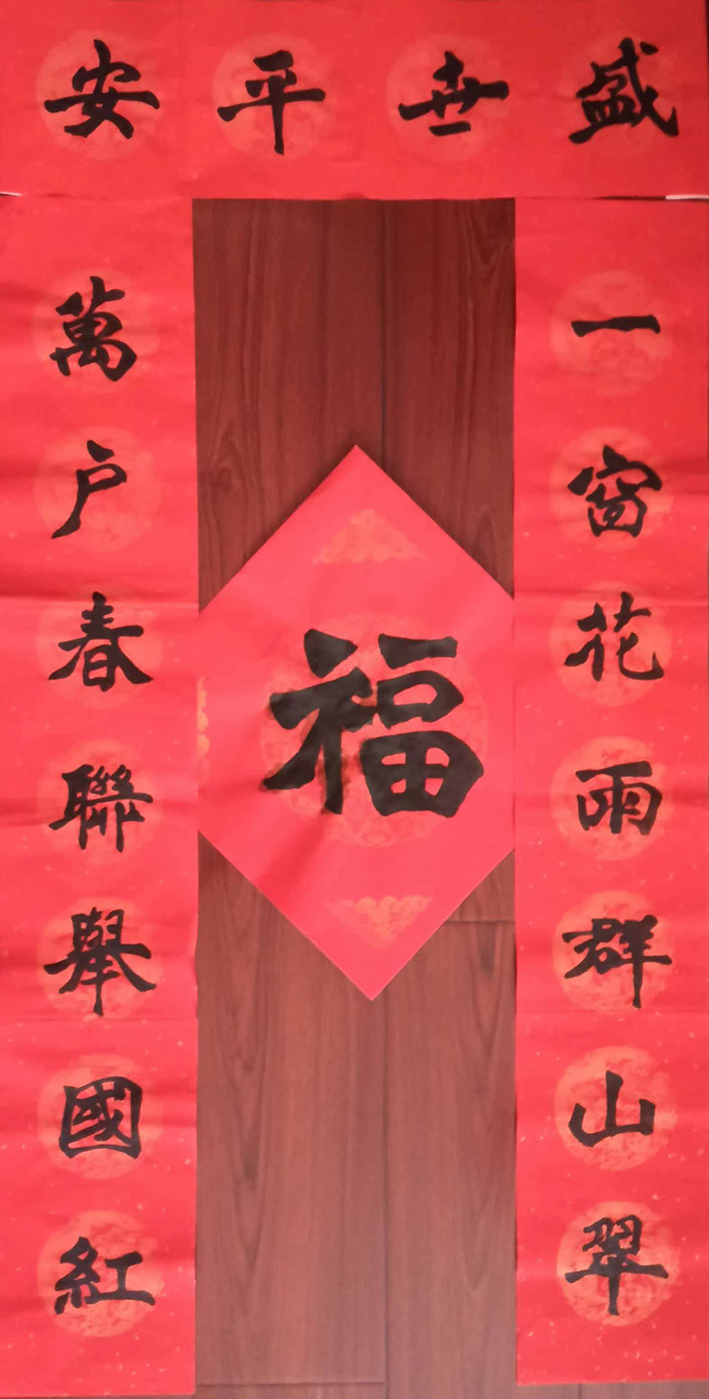 盛世平安
一窗花雨群山翠
萬户春聯舉國紅
福